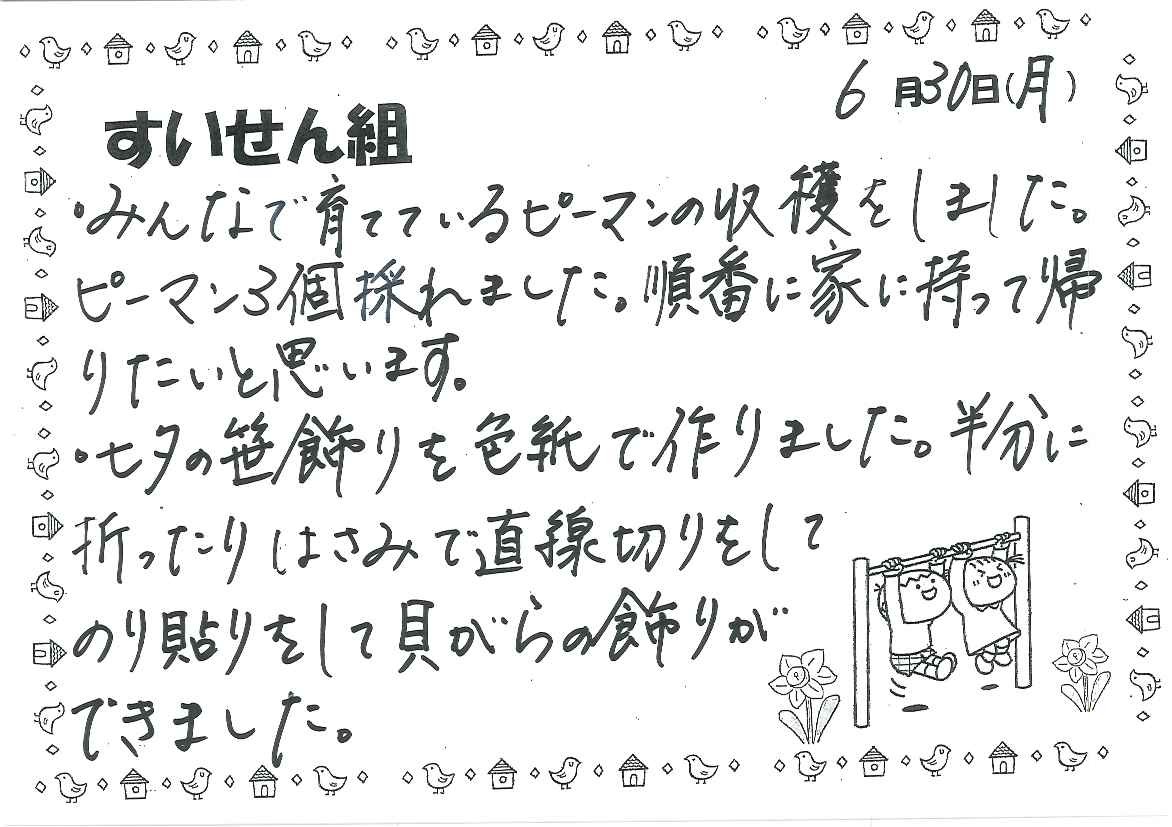 6月30日(月)
すいせん組
・みんなで育てているピーマンの収穫をしました。
ピーマン3個採れました。順番に家に持って帰
りたいと思います。
・七夕の笹飾りを色紙で作りました。半分に
折ったりはさみで直線切りをして
のり貼りをして貝がらの飾りが
できました。